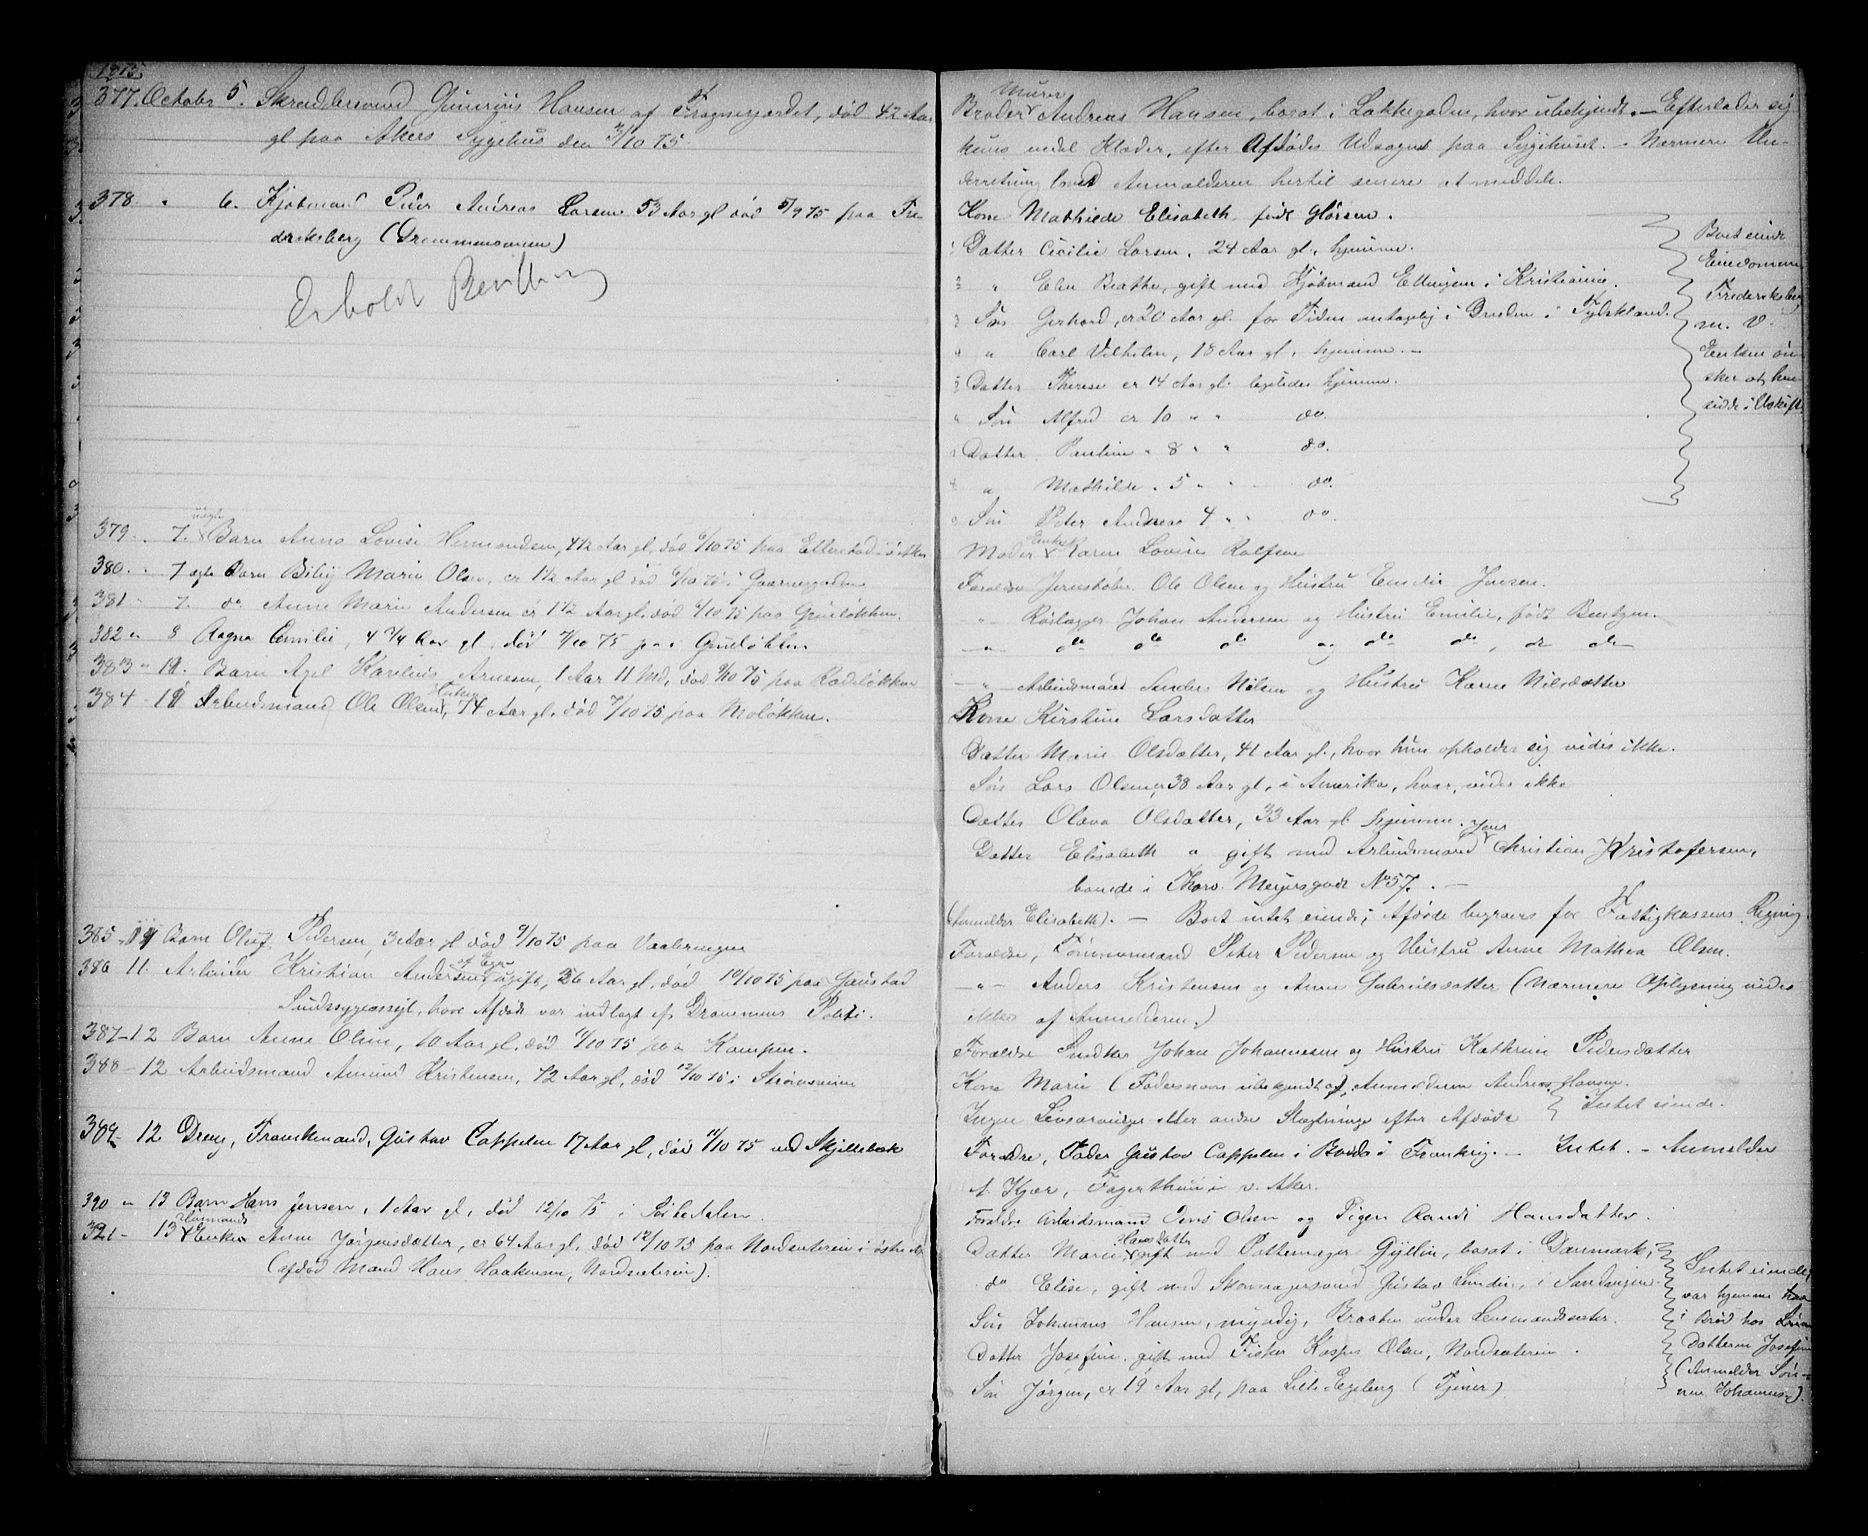 1875.
377. October 5. Skræddersvend Hansen af Frognerjordet, død 42 Aar
gl paa Akers Sygehus den 3/10 75.
378 " 6. Kjøbmand Peter Andreas Larsen 53 Aar gl død 5/9 75 paa Fre
deriksberg (Drammensveien)
379 " 7. uægte Barn Anna Lovise Hermandsen, 4 1/2 Aar gl. død 6/10 75 paa Etterstad i ø. Aker
380 " 7 ægte Barn Marie Olsen, er 1 1/2 Aar gl død 6/10 75 i
381 " 7. do Anne Marie Andersen er 1 1/2 Aar gl. død 6/10 75 paa Grünløkken.
382 " 8 Ragna Emilie, 4 3/4 Aar gl, død 7/10 75 paa Grünløkken
383 " 11. Barn Axel Karelius Arnesen, 1 Aar 11 Md, død 9/10 75 paa Rodeløkken
384 - 11 Arbeidsmand Ole Olsen, 74 Aar gl, død 7/10 75 paa Moløkken.
385 - 11 Barn Oluf Pedersen, 3 Aar gl død 9/10 75 paa Vaalerengen
386 11. Arbeider Kristian Andersen af Eger ugift, 26 Aar gl. død 10/10 75 paa Gaustad
Sindssygeasyl, hvor Afdøde var indlagt af Drammens Politi.
387 - 12 Barn Anne Olsen, 10 Aar gl. død 11/10 75 paa Kampen.
388 - 12 Arbeidsmand Amund Kristensen, 72 Aar gl, død 12/10 75 i Strømsveien
389 - 12 Dreng, Frankemand, Gustav Cappelen 17 Aar gl, død 11/10 75 ved Skjillebæk
390 " 13 Barn Hans Jensen, 1 Aar gl, død 12/10 75 i Sørkedalen
391 - 13 Husmands Enke Anne Jørgensdatter, er 64 Aar gl, død 12/10 75 paa Nordseterein i østre Ak
(afdød Mand Hans Haakensen, Nordseterein).
Broder Murer Andreas Hansen, bosat i Lakkegaden, hvor ubekjendt. — Efterlader sig
kuns endel Klæder, efter Afdødes Udsagn paa Sygehuset. - Nærmere Un-
derretning loved Anmelderen hertil senere at meddele.
Kone Mathilde Elisabeth født Hørsen.
1 Datter Cicilie Larsen, 24 Aar gl, hjemme.
2 " Elen Beathe, gift med Kjøbmand Ellingsen i Kristiania.
3 Søn Gerhard, er 20 Aar gl. for Tiden antagelig i Dresden i Tydskland.
4 " Carl Vilhelm, 18 Aar gl, hjemme. -
5 Datter Therese er 14 Aar gl. ligeledes hjemme.
6 Søn Alfred er 10 " " do.
7 Datter Pauline " 8 " " do.
8 " Mathilde " 5 " " do.
9 Søn Peter Andreas 4 " " do
Boet eiende
Eiendommen
Frederiksberg
m. V.
Enken øn-
sker at hen
sidde i Uskifte
Moder Enke Karen Lovise Rolfsen
Forældre Ole Olsen og Hustru Emilie Jensen.
- " - Rørlægger Johan Andersen og Hustru Emilie, født Bentzen.
- " - do do do og do do, do do
- " - Arbeidsmand Anders Nilsen og Hustru Karen Nilsdatter
Kone Kirstine Larsdatter
Datter Marie Olsdatter, 41 Aar gl, hvor hun opholder sig vides ikke.
Søn Lars Olsen er 38 Aar gl, i Amerika, hvor, vides ikke
Datter Olava Olsdatter, 33 Aar gl. hjemme.
Datter Elisabeth " gift med Arbeidsmand Jens Christian Kristofersen,
boende i Thorv. Meyersgade No 57. . -
(Anmelder Elisabeth). — Boet intet eiende; Afdøde begraves for Fattigkassens Regning.
Forældre, Tømmermand Peter Pedersen og Hustru Anne Mathea Olsen.
- " - Anders Kristensen og Anne Gabrielsdatter (Nærmere Oplysning vides
ikke af Anmelderen.)
Forældre Snedker Johan Johannesen og Hustru Kathrine Pedersdatter
Kone Marie (Fadersnavn ubekjendt af Anmelderen Andreas Hansen.
Ingen Livsarvinger eller andre Slægtninge efter Afdøde } Intet eiende.
Forældre, Fader Gustav Cappelen i i Frankrig. - Intet. - Anmelder
A. Kjær, i v. Aker.
Forældre Arbeidsmand Jens Olsen og Pigen Randi Hansdatter.
Datter Marie Hansdatter gift med Pottemager Gyllin, bosat i Danmark;
do Elise, gift med Skomagersvend Gustav Lindin, i Sandvigen.
Søn Johannes Hansen, myndig, Braaten under Lensmandssæter.
Datter Josefine, gift med Fisker Kasper Olsen, Nordseterein.
Søn Jørgen, er 19 Aar gl, paa Lille Egeberg (Tjener).
Intet eiende,
var hjemme
i Brød hos
Datteren Josefine
(Anmelder Søn-
nen Johannes).